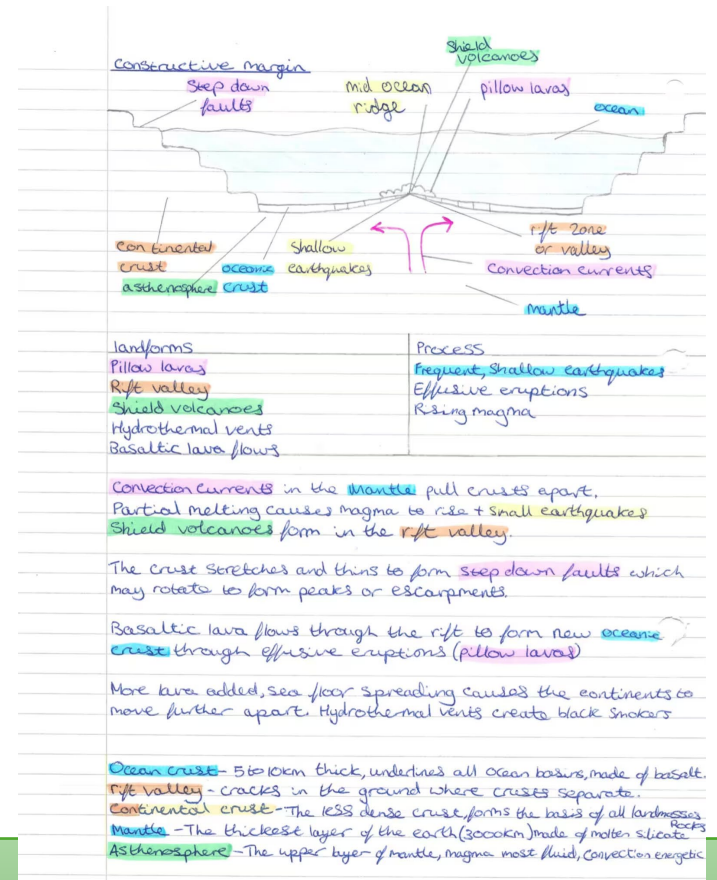 Constructive margin
Shield
volcanoes
Step down
faults
mid ocean
ridge
pillow lavas
ocean
continental
crust
asthenosphere
oceanic
crust
Shallow
earthquakes
rift zone
or valley
Convection currents
mantle
landforms
Pillow lavas
Rift valley
Shield volcanoes
Hydrothermal vents
Basaltic lava flows
Process
Frequent, Shallow earthquakes
Effusive eruptions
Rising magma
Convection currents in the mantle pull crusts apart.
Partial melting causes magma to rise + small earthquakes
Shield volcanoes form in the rift valley.
The crust stretches and thins to form step down faults which
may rotate to form peaks or escarpments.
Basaltic lava flows through the rift to form new oceanic
crust through effusive eruptions (pillow lavas)
More lava added, sea floor spreading causes the continents to
move further apart. Hydrothermal vents create black smokers
Ocean crust - 5 to 10km thick, underlines all ocean basins, made of basalt.
rift valley - cracks in the ground where crusts separate.
Continental crust - The less dense crust, forms the basis of all landmasses
Mantle - The thickest layer of the earth (3000km) made of molten silicate Rocks
Asthenosphere - The upper layer of mantle, magma most fluid, convection energetic